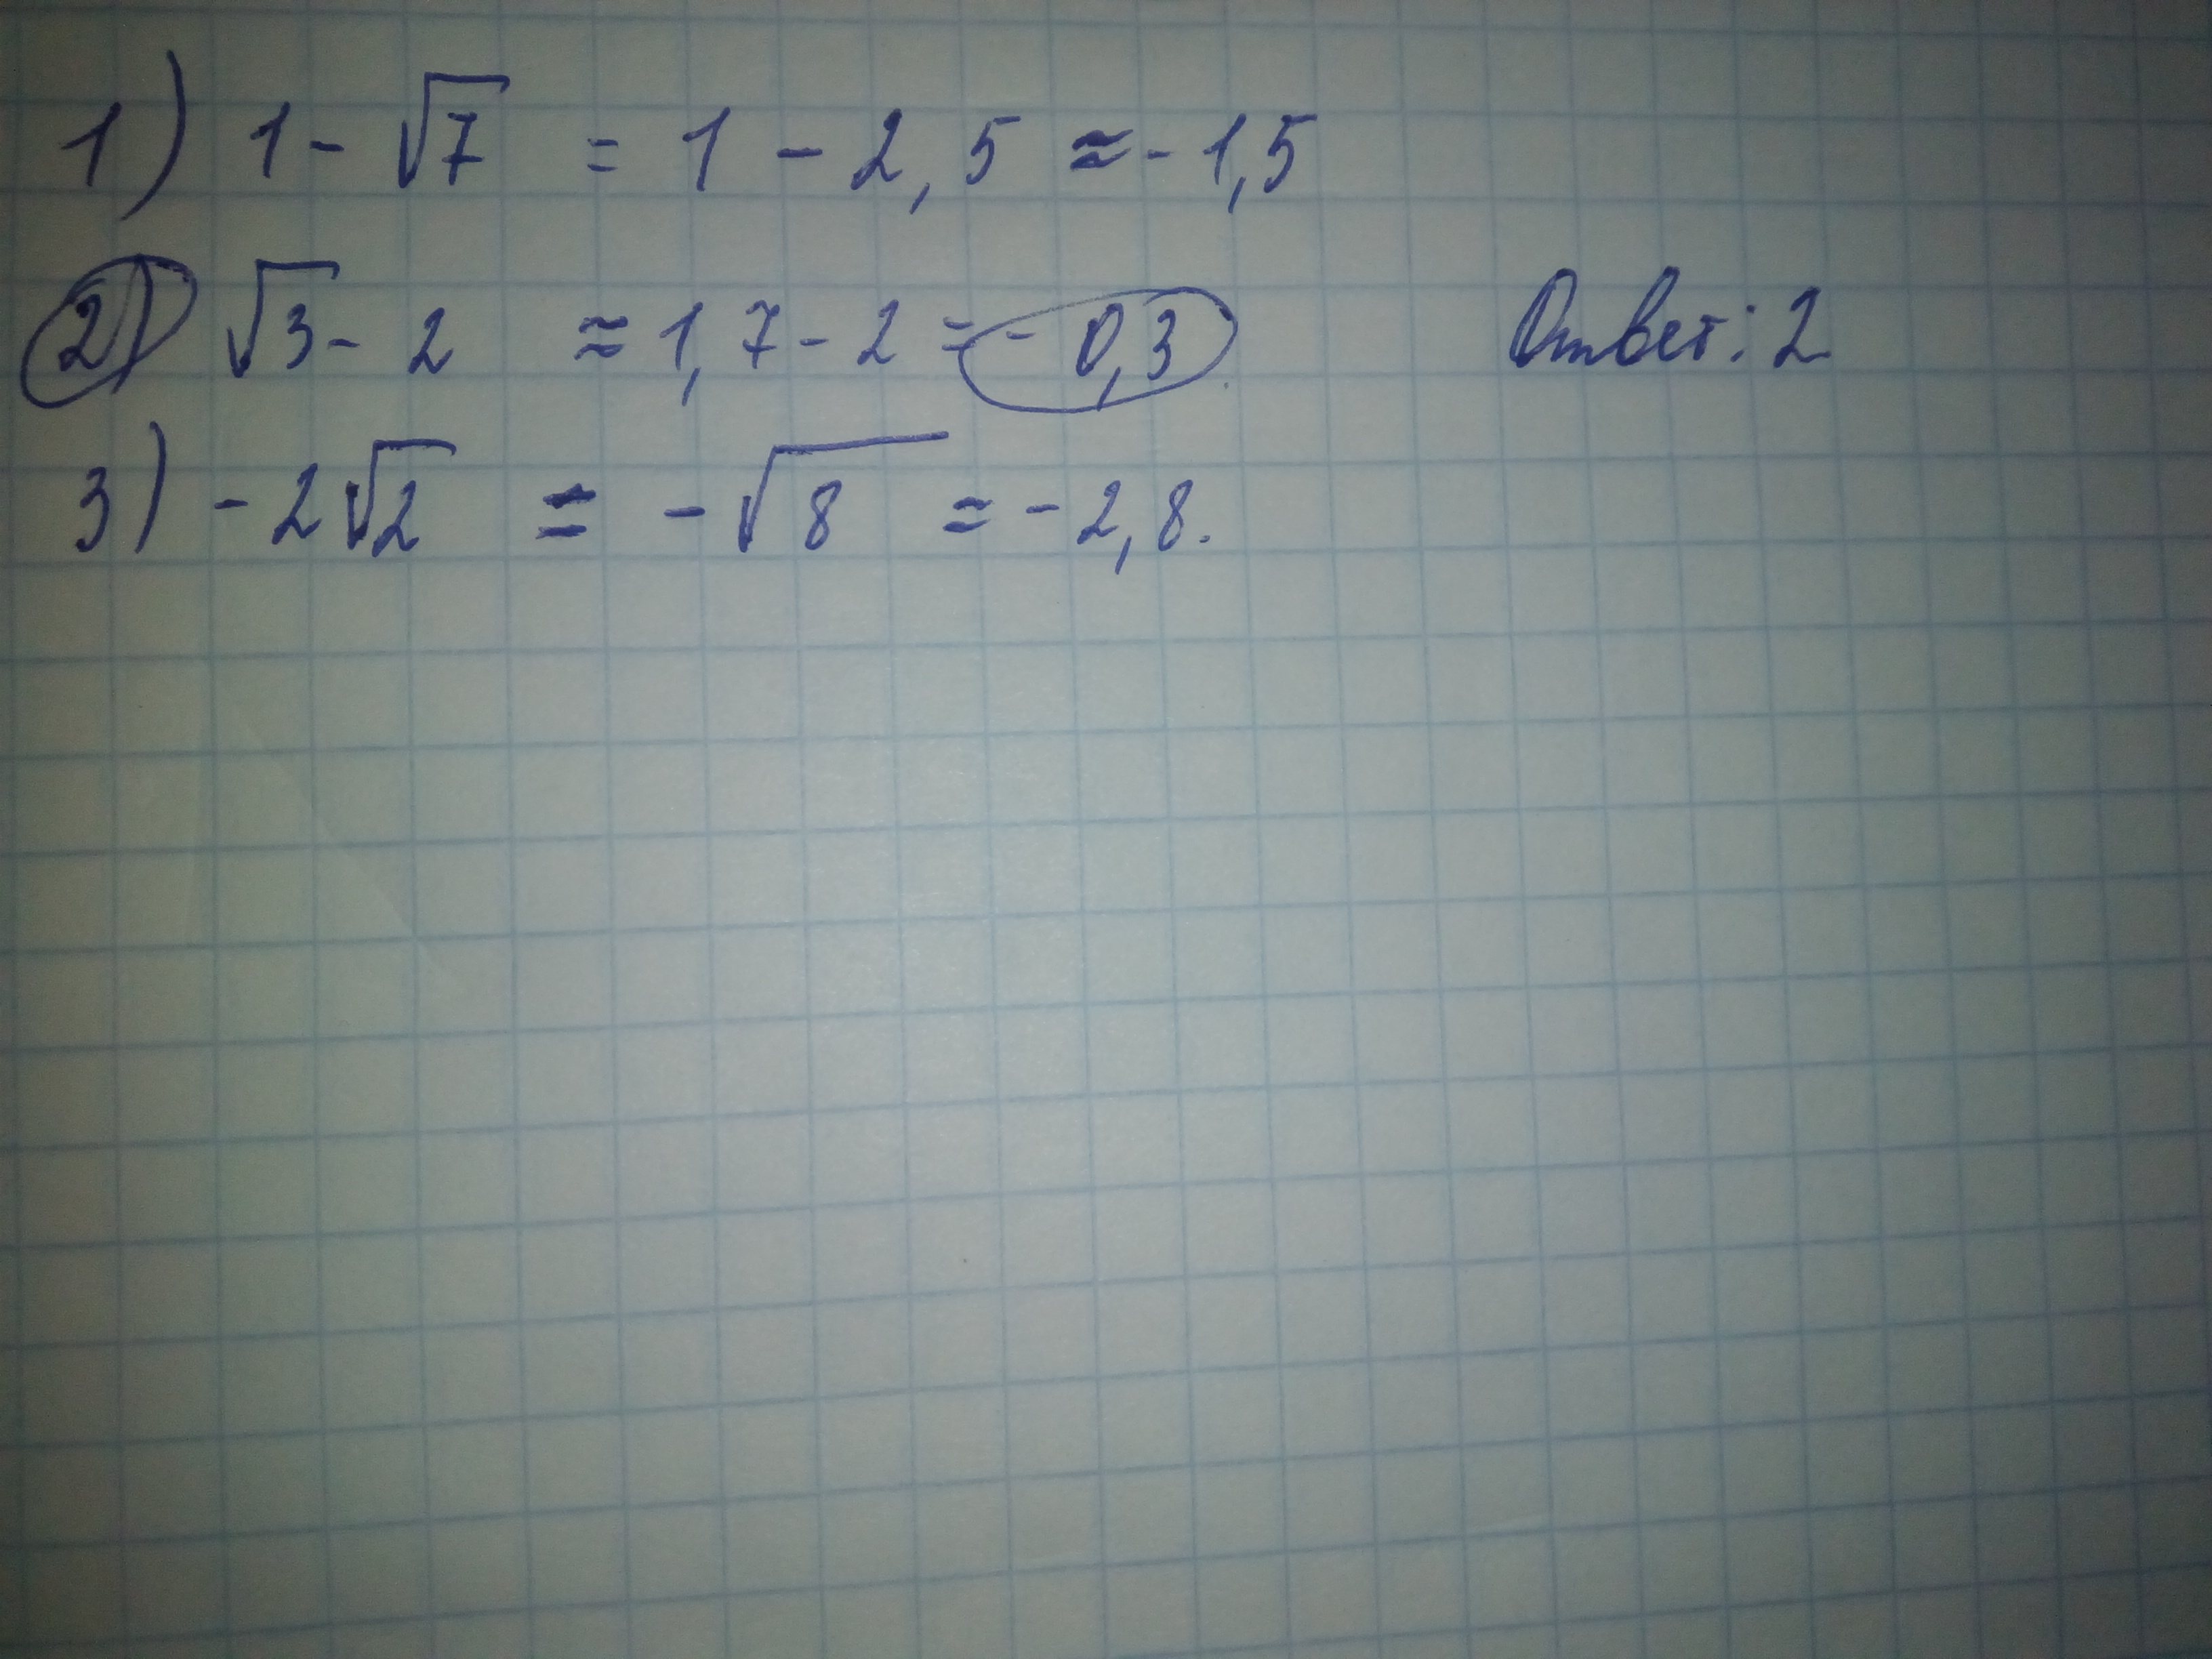 1) 1 - √7 = 1 - 2,5 ≈ - 1,5
2) √3 - 2 ≈ 1,7 - 2 = - 0,3 Ответ: 2
3) - 2√2 = - √8 ≈ - 2,8.